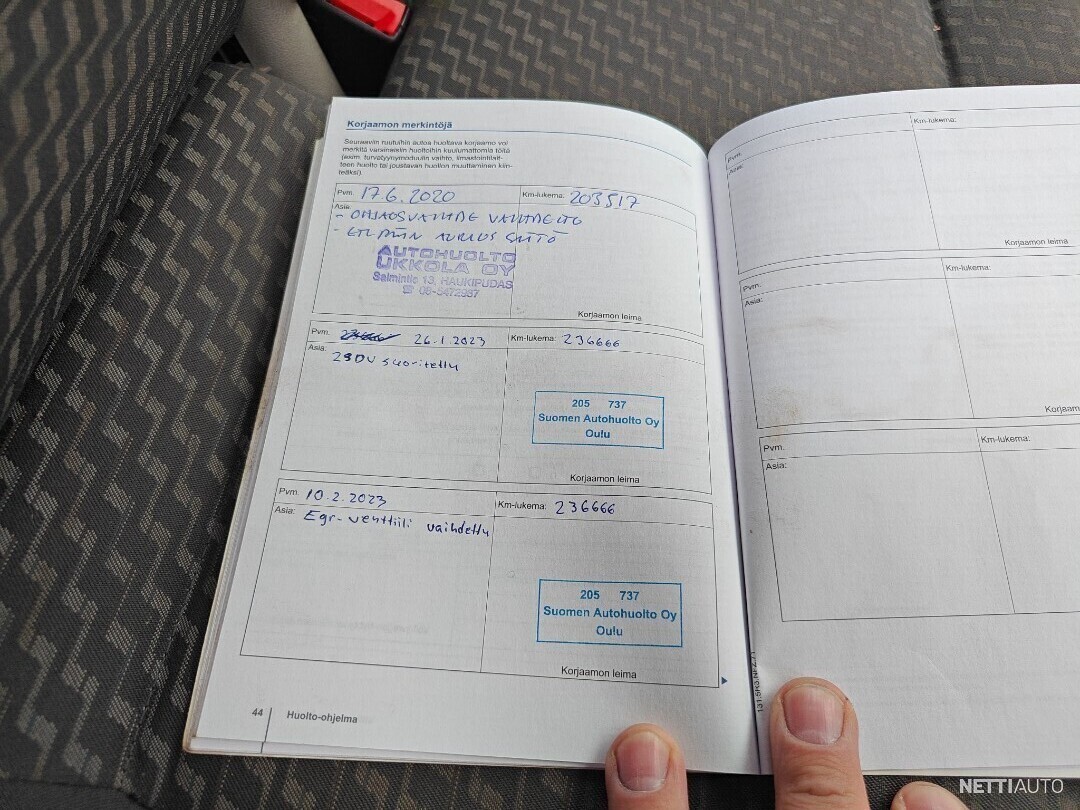 Korjaamon merkintöjä
Seuraaviin ruutuihin autoa huoltava korjaamo voi
merkitä varsinaisiin huoltoihin kuulumattomia töitä
(esim. turvatyynymoduulin vaihto, ilmastointilait-
teen huolto tai joustavan huollon muuttaminen kiin-
teäksi)
Pvm. 17.6.2020 Km-lukema: 203517
Asia:
- OHJAUSVAIHDE VAIHDETTU
- ETUPÄÄN AURAUS SÄÄTÖ
AUTOHUOLTO
UKKOLA OY
Salmintie 13, HAUKIPUDAS
☎ 08-5472987
Korjaamon leima
Pvm. 26.1.2023 Km-lukema: 236666
Asia: 23DU suoritettu
205 737
Suomen Autohuolto Oy
Oulu
Korjaamon leima
Pvm. 10.2.2023 Km-lukema: 236666
Asia: Egr-venttiili vaihdettu
205 737
Suomen Autohuolto Oy
Oulu
Korjaamon leima
44 Huolto-ohjelma
Pvm. Km-lukema:
Asia:
Korjaamon leima
Pvm. Km-lukema:
Asia:
Korjaam
Pvm. Km-lukema:
Asia:
NETTIAUTO